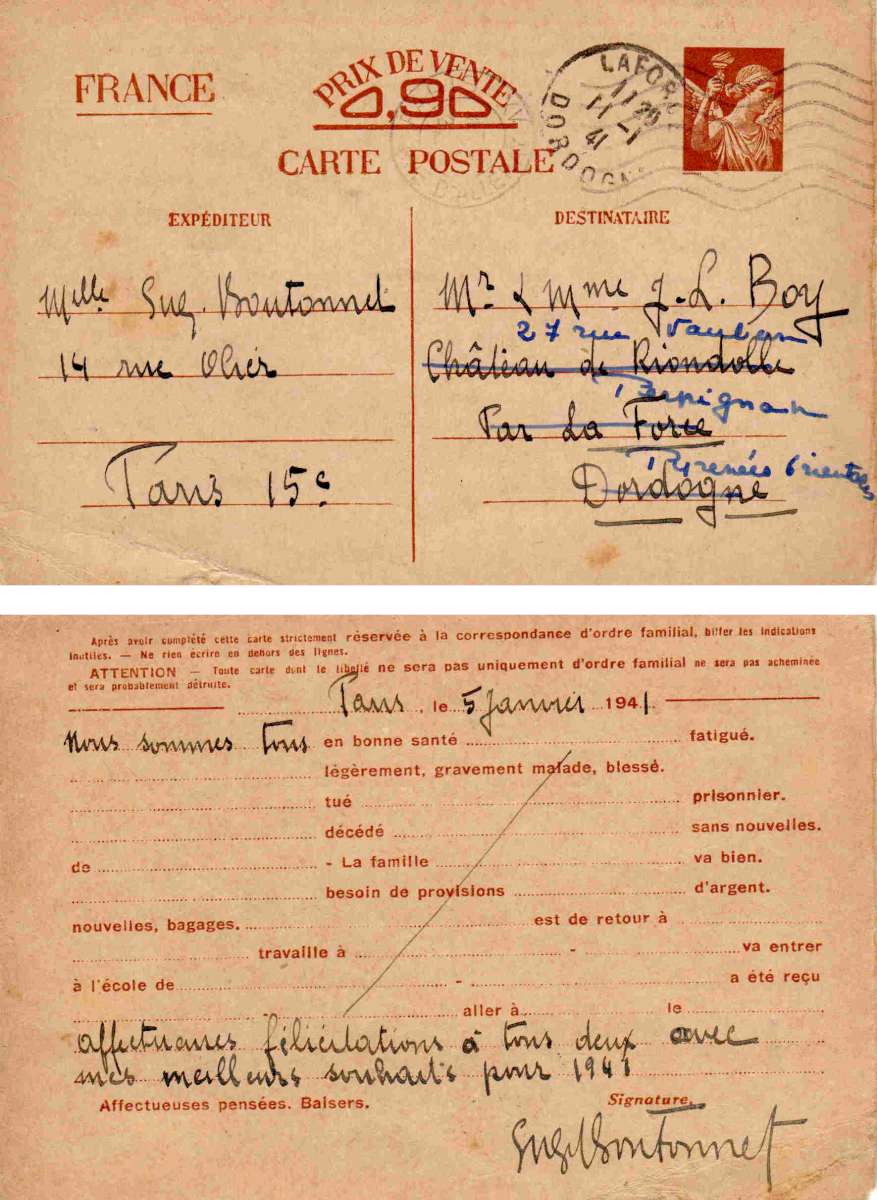 FRANCE
PRIX DE VENTE
0,90
CARTE POSTALE
LAFORCE
11 20
11 -1
41
DORDOGNE
EXPÉDITEUR
Melle Eug. Boutonnet
14 rue Olier
Paris 15e
DESTINATAIRE
Mr & Mme J. L. Boy
27 rue Vauban
Château de Riondolle
Perpignan
Par La Force
Pyrenées Orientales
Dordogne
Après avoir complété cette carte strictement réservée à la correspondance d'ordre familial, biffer les indications
inutiles. — Ne rien écrire en dehors des lignes.
ATTENTION — Toute carte dont le libellé ne sera pas uniquement d'ordre familial ne sera pas acheminée
et sera probablement détruite.
Paris, le 5 Janvier 1941
Nous sommes tous en bonne santé fatigué.
légèrement, gravement malade, blessé.
tué prisonnier.
décédé sans nouvelles.
de - La famille va bien.
besoin de provisions d'argent.
nouvelles, bagages. est de retour à
travaille à - va entrer
à l'école de - a été reçu
aller à le
affectueuses félicitations à tous deux avec
mes meilleurs souhaits pour 1941
Affectueuses pensées. Baisers. Signature.
Eug Boutonnet